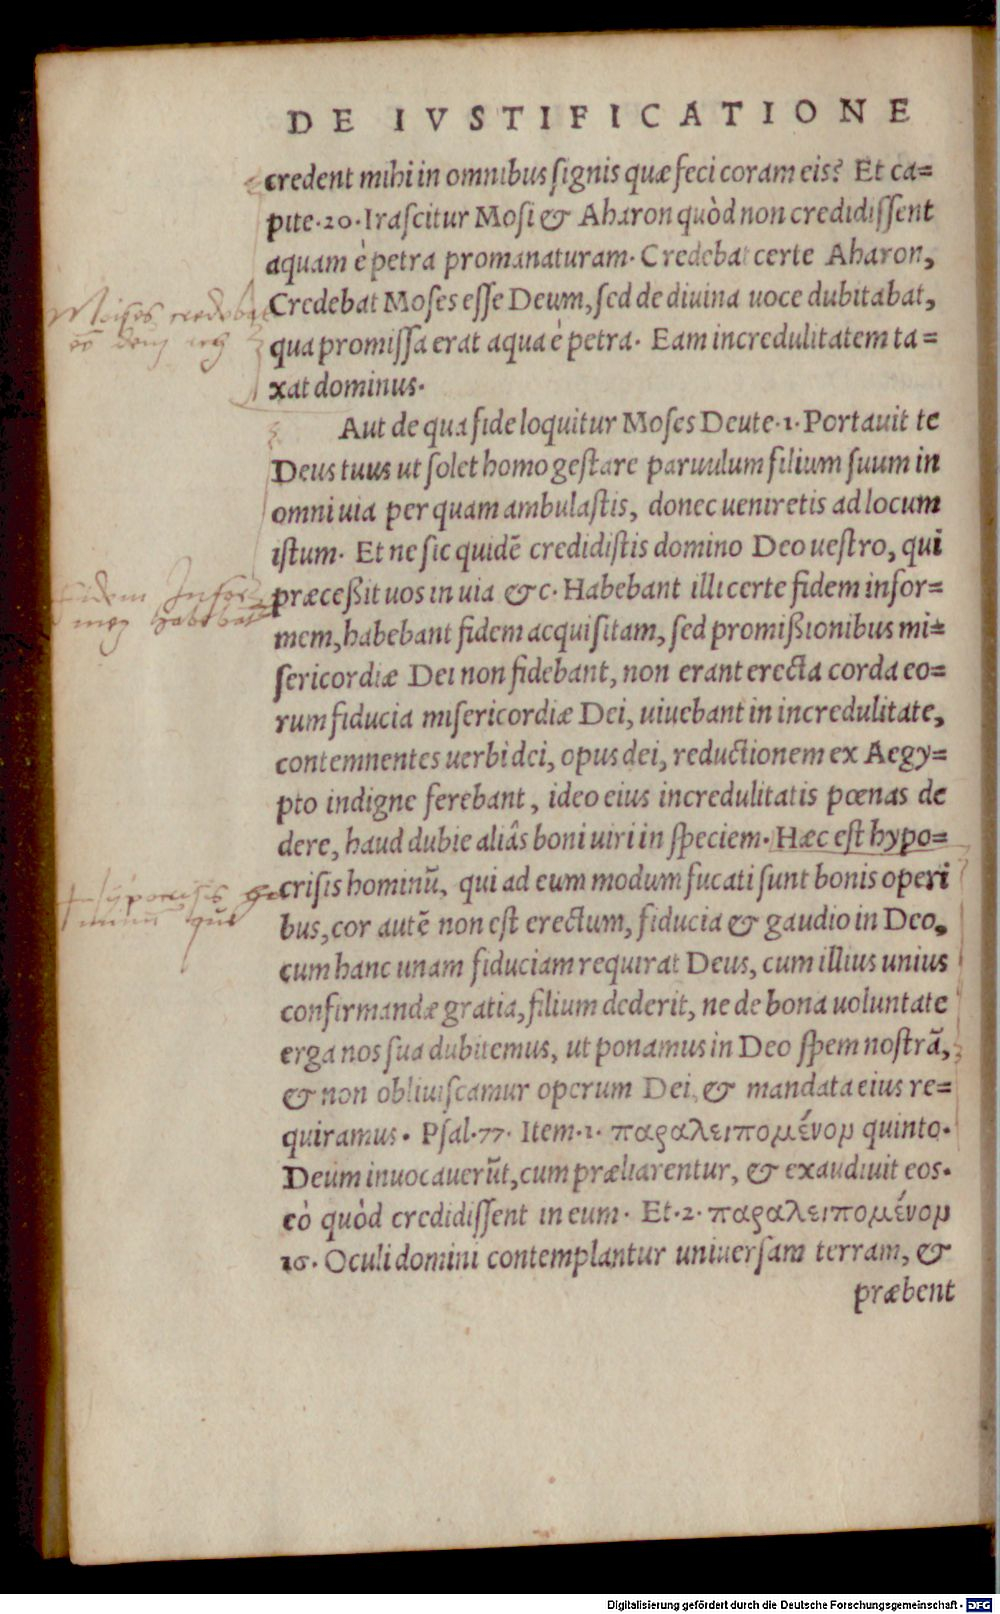 DE IVSTIFICATIONE
credent mihi in omnibus ſignis quæ feci coram eis? Et ca=
pite·20·Iraſcitur Moſi & Aharon quòd non credidiſſent
aquam è petra promanaturam· Credebat certe Aharon,
Credebat Moſes eſſe Deum, ſed de diuina uoce dubitabat,
qua promiſſa erat aqua è petra· Eam incredulitatem ta=
xat dominus·
Aut de qua fide loquitur Moſes Deute·1· Portauit te
Deus tuus ut ſolet homo geſtare paruulum filium ſuum in
omni uia per quam ambulaſtis, donec ueniretis ad locum
iſtum· Et ne ſic quidē credidiſtis domino Deo ueſtro, qui
præceßit uos in uia &c· Habebant illi certe fidem infor=
mem, habebant fidem acquiſitam, ſed promißionibus mi=
ſericordiæ Dei non fidebant, non erant erecta corda eo=
rum fiducia miſericordiæ Dei, uiuebant in incredulitate,
contemnentes uerbi dei, opus dei, reductionem ex Aegy=
pto indigne ferebant, ideo eius incredulitatis pœnas de
dere, haud dubie aliâs boni uiri in ſpeciem· Hæc eſt hypo=
criſis hominū, qui ad eum modum fucati ſunt bonis operi
bus, cor autē non eſt erectum, fiducia & gaudio in Deo,
cum hanc unam fiduciam requirat Deus, cum illius unius
confirmandæ gratia, filium dederit, ne de bona uoluntate
erga nos ſua dubitemus, ut ponamus in Deo ſpem noſtrā,
& non obliuiſcamur operum Dei, & mandata eius re=
quiramus· Pſal·77· Item·1· παραλειπομένων quinto·
Deum inuocauerūt, cum præliarentur, & exaudiuit eos·
eò quòd credidiſſent in eum· Et·2· παραλειπομένων
16· Oculi domini contemplantur uniuerſam terram, &
præbent
Moises credebat
Fidem Infor=
mem habebat
Hypocrisis ho
minū qui
Digitalisierung gefördert durch die Deutsche Forschungsgemeinschaft - DFG